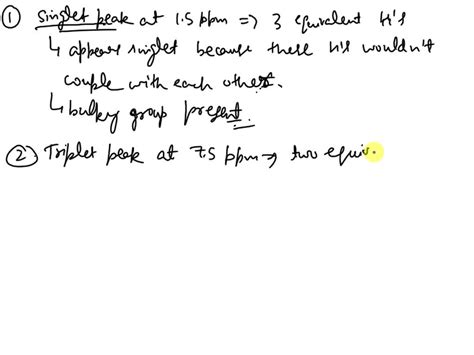 ① Singlet peak at 1.5 ppm => 3 equivalent H's
↳ appears singlet because these H's wouldn't
couple with each other.
↳ bulky group present.
②. Triplet peak at 7.5 ppm => two equiv.